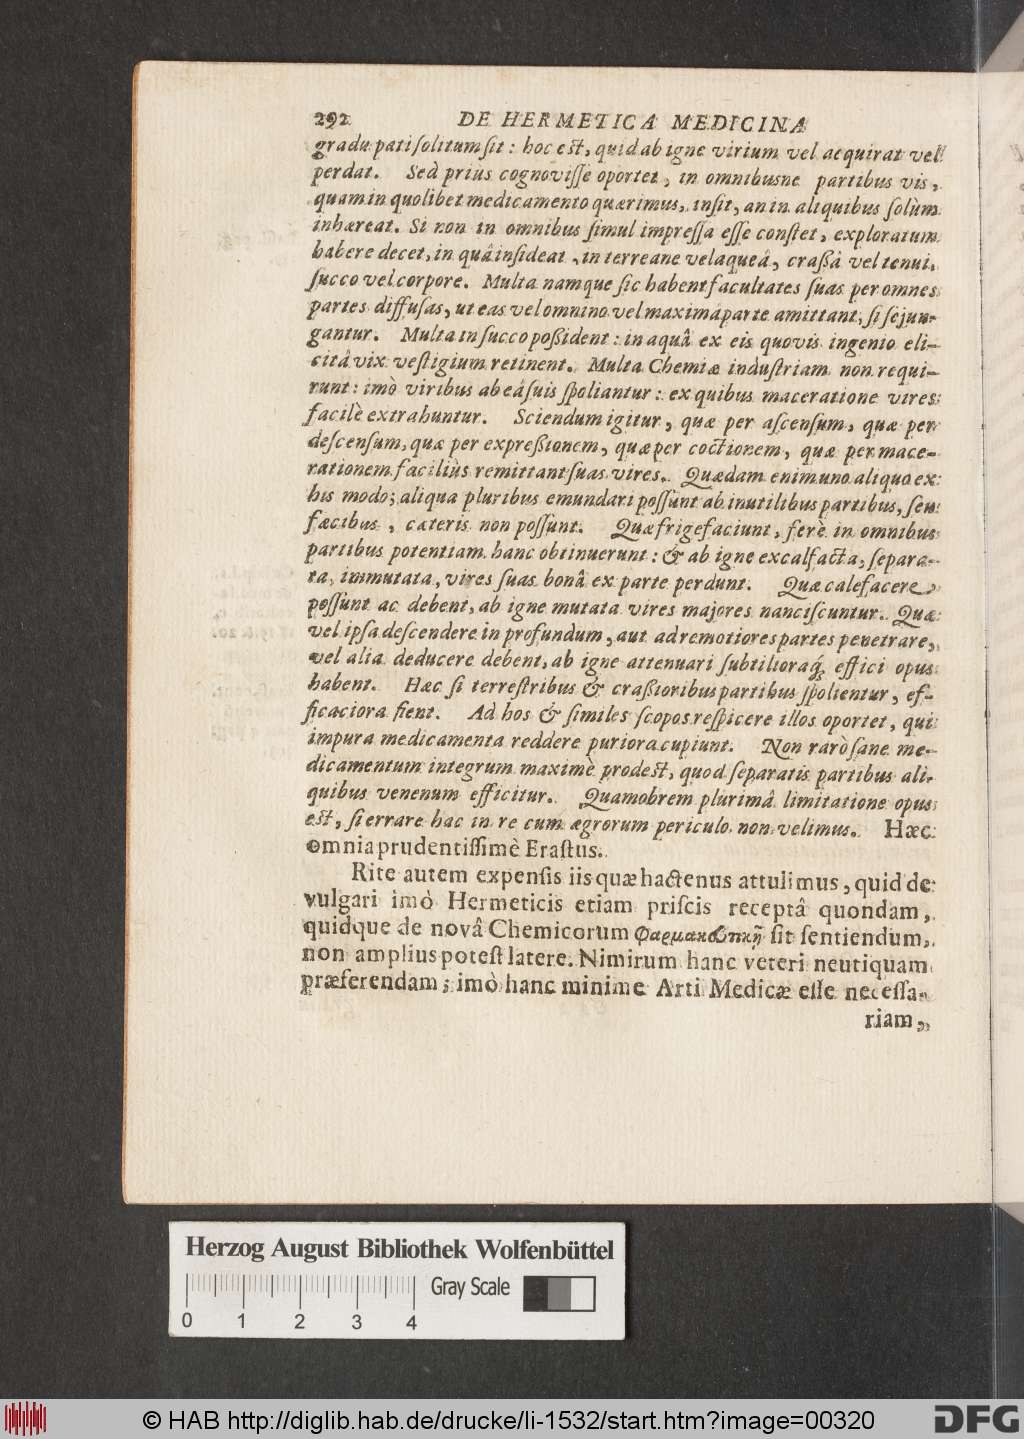 292 DE HERMETICA MEDICINA
gradu pati ſolitum ſit: hoc eſt, quid ab igne virium vel acquirat vel
perdat. Sed prius cognoviſſe oportet, in omnibusne partibus vis,
quam in quolibet medicamento quærimus, inſit, an in aliquibus ſolùm
inhæreat. Si non in omnibus ſimul impreſſa eſſe conſtet, exploratum
habere decet, in quâ inſideat, in terreane vel aqueâ, craſſâ vel tenui,
ſucco vel corpore. Multa namque ſic habent facultates ſuas per omnes
partes diffuſas, ut eas vel omnino vel maximâ parte amittant, ſi ſejun-
gantur. Multa in ſucco poßident: in aquâ ex eis quovis ingenio eli-
citâ vix veſtigium retinent. Multa Chemiæ induſtriam non requi-
runt: imò viribus ab eâ ſuis ſpoliantur: ex quibus maceratione vires
facilè extrahuntur. Sciendum igitur, quæ per aſcenſum, quæ per
deſcenſum, quæ per expreßionem, quæ per coctionem, quæ per mace-
rationem faciliùs remittant ſuas vires. Quædam enim uno aliquo ex
his modo; aliqua pluribus emundari poſſunt ab inutilibus partibus, ſeu
fæcibus, cæteris non poſſunt. Quæ frigefaciunt, ferè in omnibus
partibus potentiam hanc obtinuerunt: & ab igne excalfacta, ſepara-
ta, immutata, vires ſuas bonâ ex parte perdunt. Quæ calefacere
poſſunt ac debent, ab igne mutata vires majores nanciſcuntur. Quæ
vel ipſa deſcendere in profundum, aut ad remotiores partes penetrare,
vel alia deducere debent, ab igne attenuari ſubtilioraq́; effici opus
habent. Hæc ſi terreſtribus & craßioribus partibus ſpolientur, ef-
ficaciora fient. Ad hos & ſimiles ſcopos reſpicere illos oportet, qui
impura medicamenta reddere puriora cupiunt. Non rarò ſane me-
dicamentum integrum maximè prodeſt, quod ſeparatis partibus ali-
quibus venenum efficitur. Quamobrem plurimâ limitatione opus
eſt, ſi errare hac in re cum ægrorum periculo non velimus. Hæc
omnia prudentiſſimè Eraſtus.
Rite autem expenſis iis quæ hactenus attulimus, quid de
vulgari imò Hermeticis etiam priſcis receptâ quondam,
quidque de novâ Chemicorum φαρμακευτικῇ ſit ſentiendum,
non amplius poteſt latere. Nimirum hanc veteri neutiquam
præferendam; imò hanc minime Arti Medicæ eſſe neceſſa-
riam,
Herzog August Bibliothek Wolfenbüttel
Gray Scale
0 1 2 3 4
© HAB http://diglib.hab.de/drucke/li-1532/start.htm?image=00320
DFG